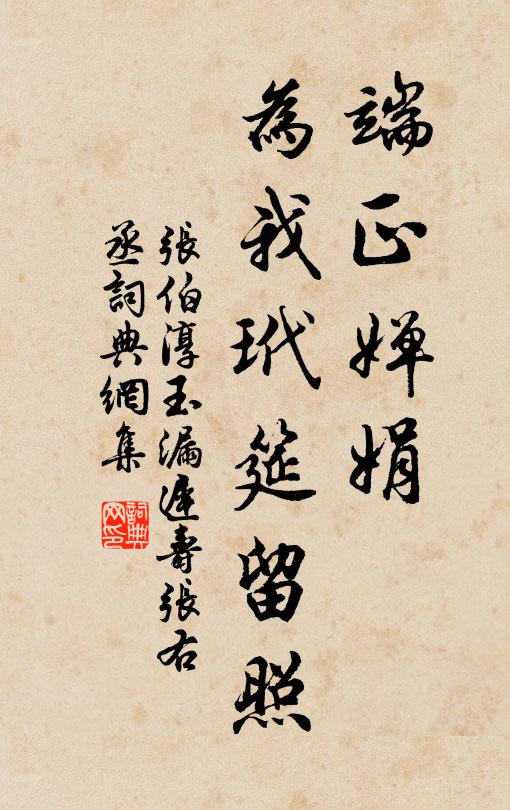 端正嬋娟
為我玳筵留照
張伯淳玉漏遲壽張右
丞詞典網集
詞典
网印